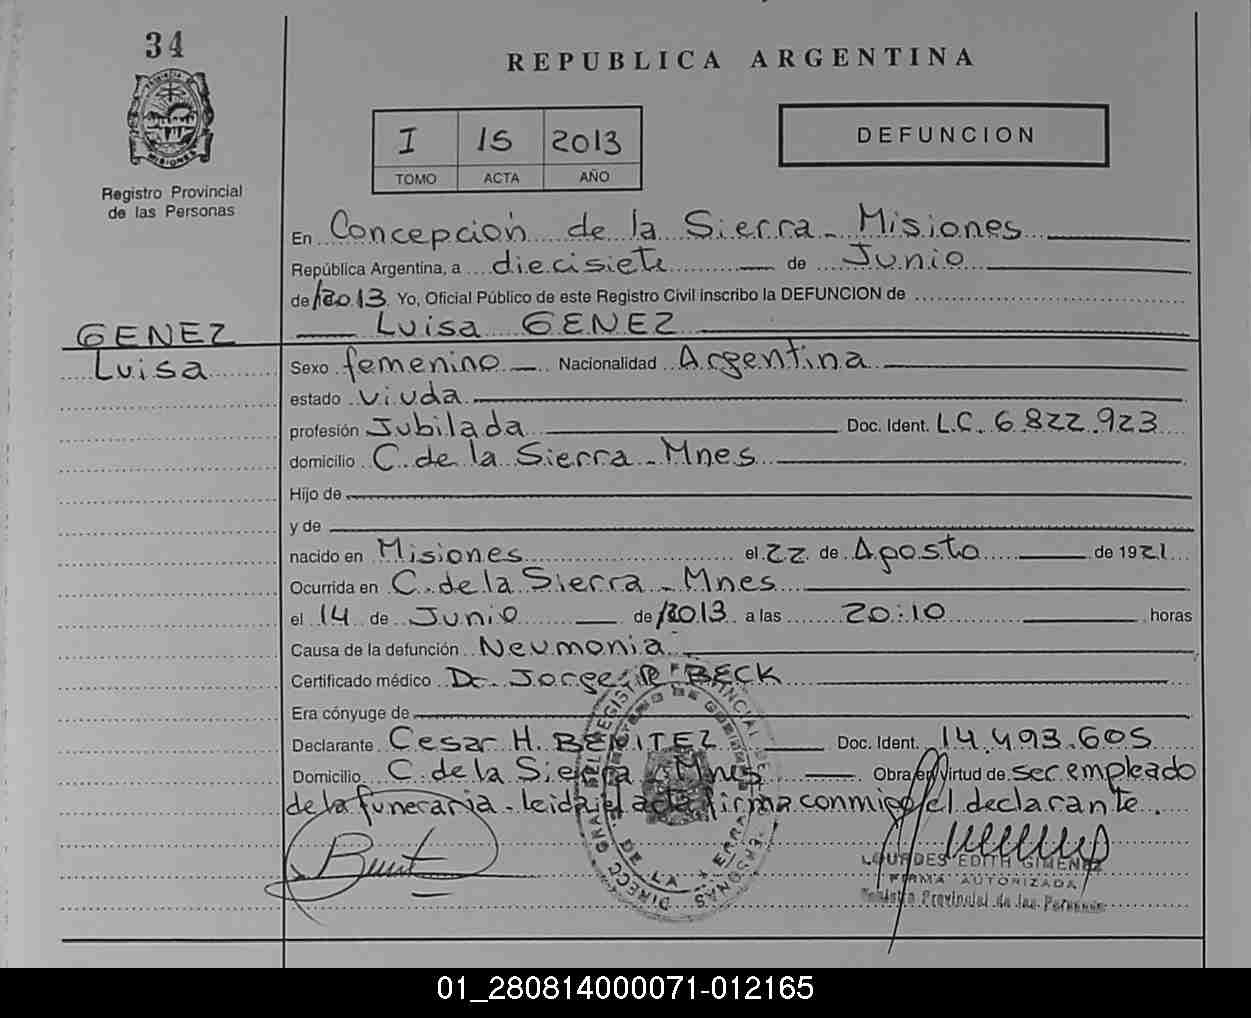 34
MISIONES
Registro Provincial
de las Personas
REPUBLICA ARGENTINA
I 15 2013
TOMO ACTA AÑO
DEFUNCION
En Concepción de la Sierra - Misiones
República Argentina, a diecisiete de Junio
de 2013 Yo, Oficial Público de este Registro Civil inscribo la DEFUNCION de
GENEZ
Luisa
Luisa GENEZ
Sexo femenino Nacionalidad Argentina
estado viuda
profesión Jubilada Doc. Ident. L.C. 6.822.923
domicilio C. de la Sierra - Mnes
Hijo de
y de
nacido en Misiones el 22 de Agosto de 1921
Ocurrida en C. de la Sierra - Mnes
el 14 de Junio de 2013 a las 20:10 horas
Causa de la defunción Neumonia
Certificado médico Dr. Jorge R. BECK
Era cónyuge de
Declarante Cesar H. BENITEZ Doc. Ident. 14.493.605
Domicilio C. de la Sierra - Mnes Obra en virtud de ser empleado
de la funeraria - leida el acta firma conmigo el declarante.
LOURDES EDITH GIMENEZ
FIRMA AUTORIZADA
Registro Provincial de las Personas
01_280814000071-012165